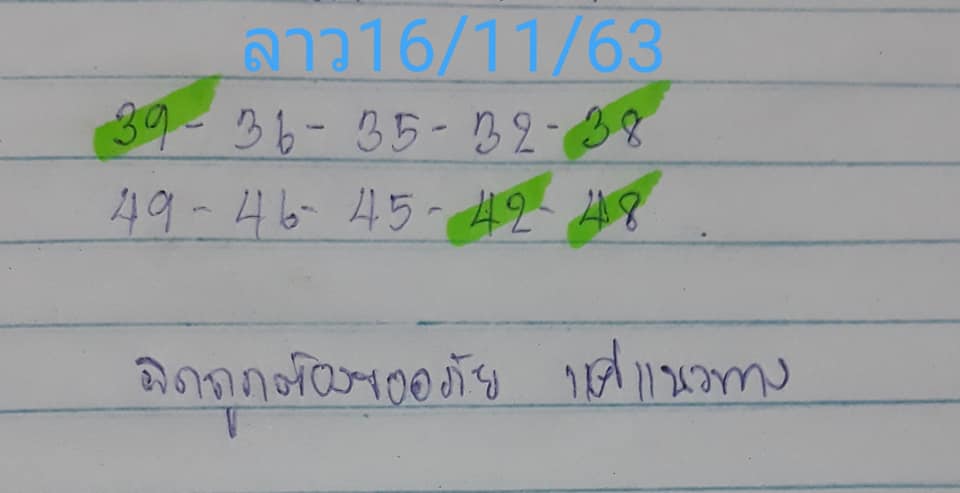 ลาว16/11/63
39 - 36 - 35 - 32 - 38
49 - 46 - 45 - 42 - 48 .
ผิดถูกต้องขออภัย แค่แนวทาง